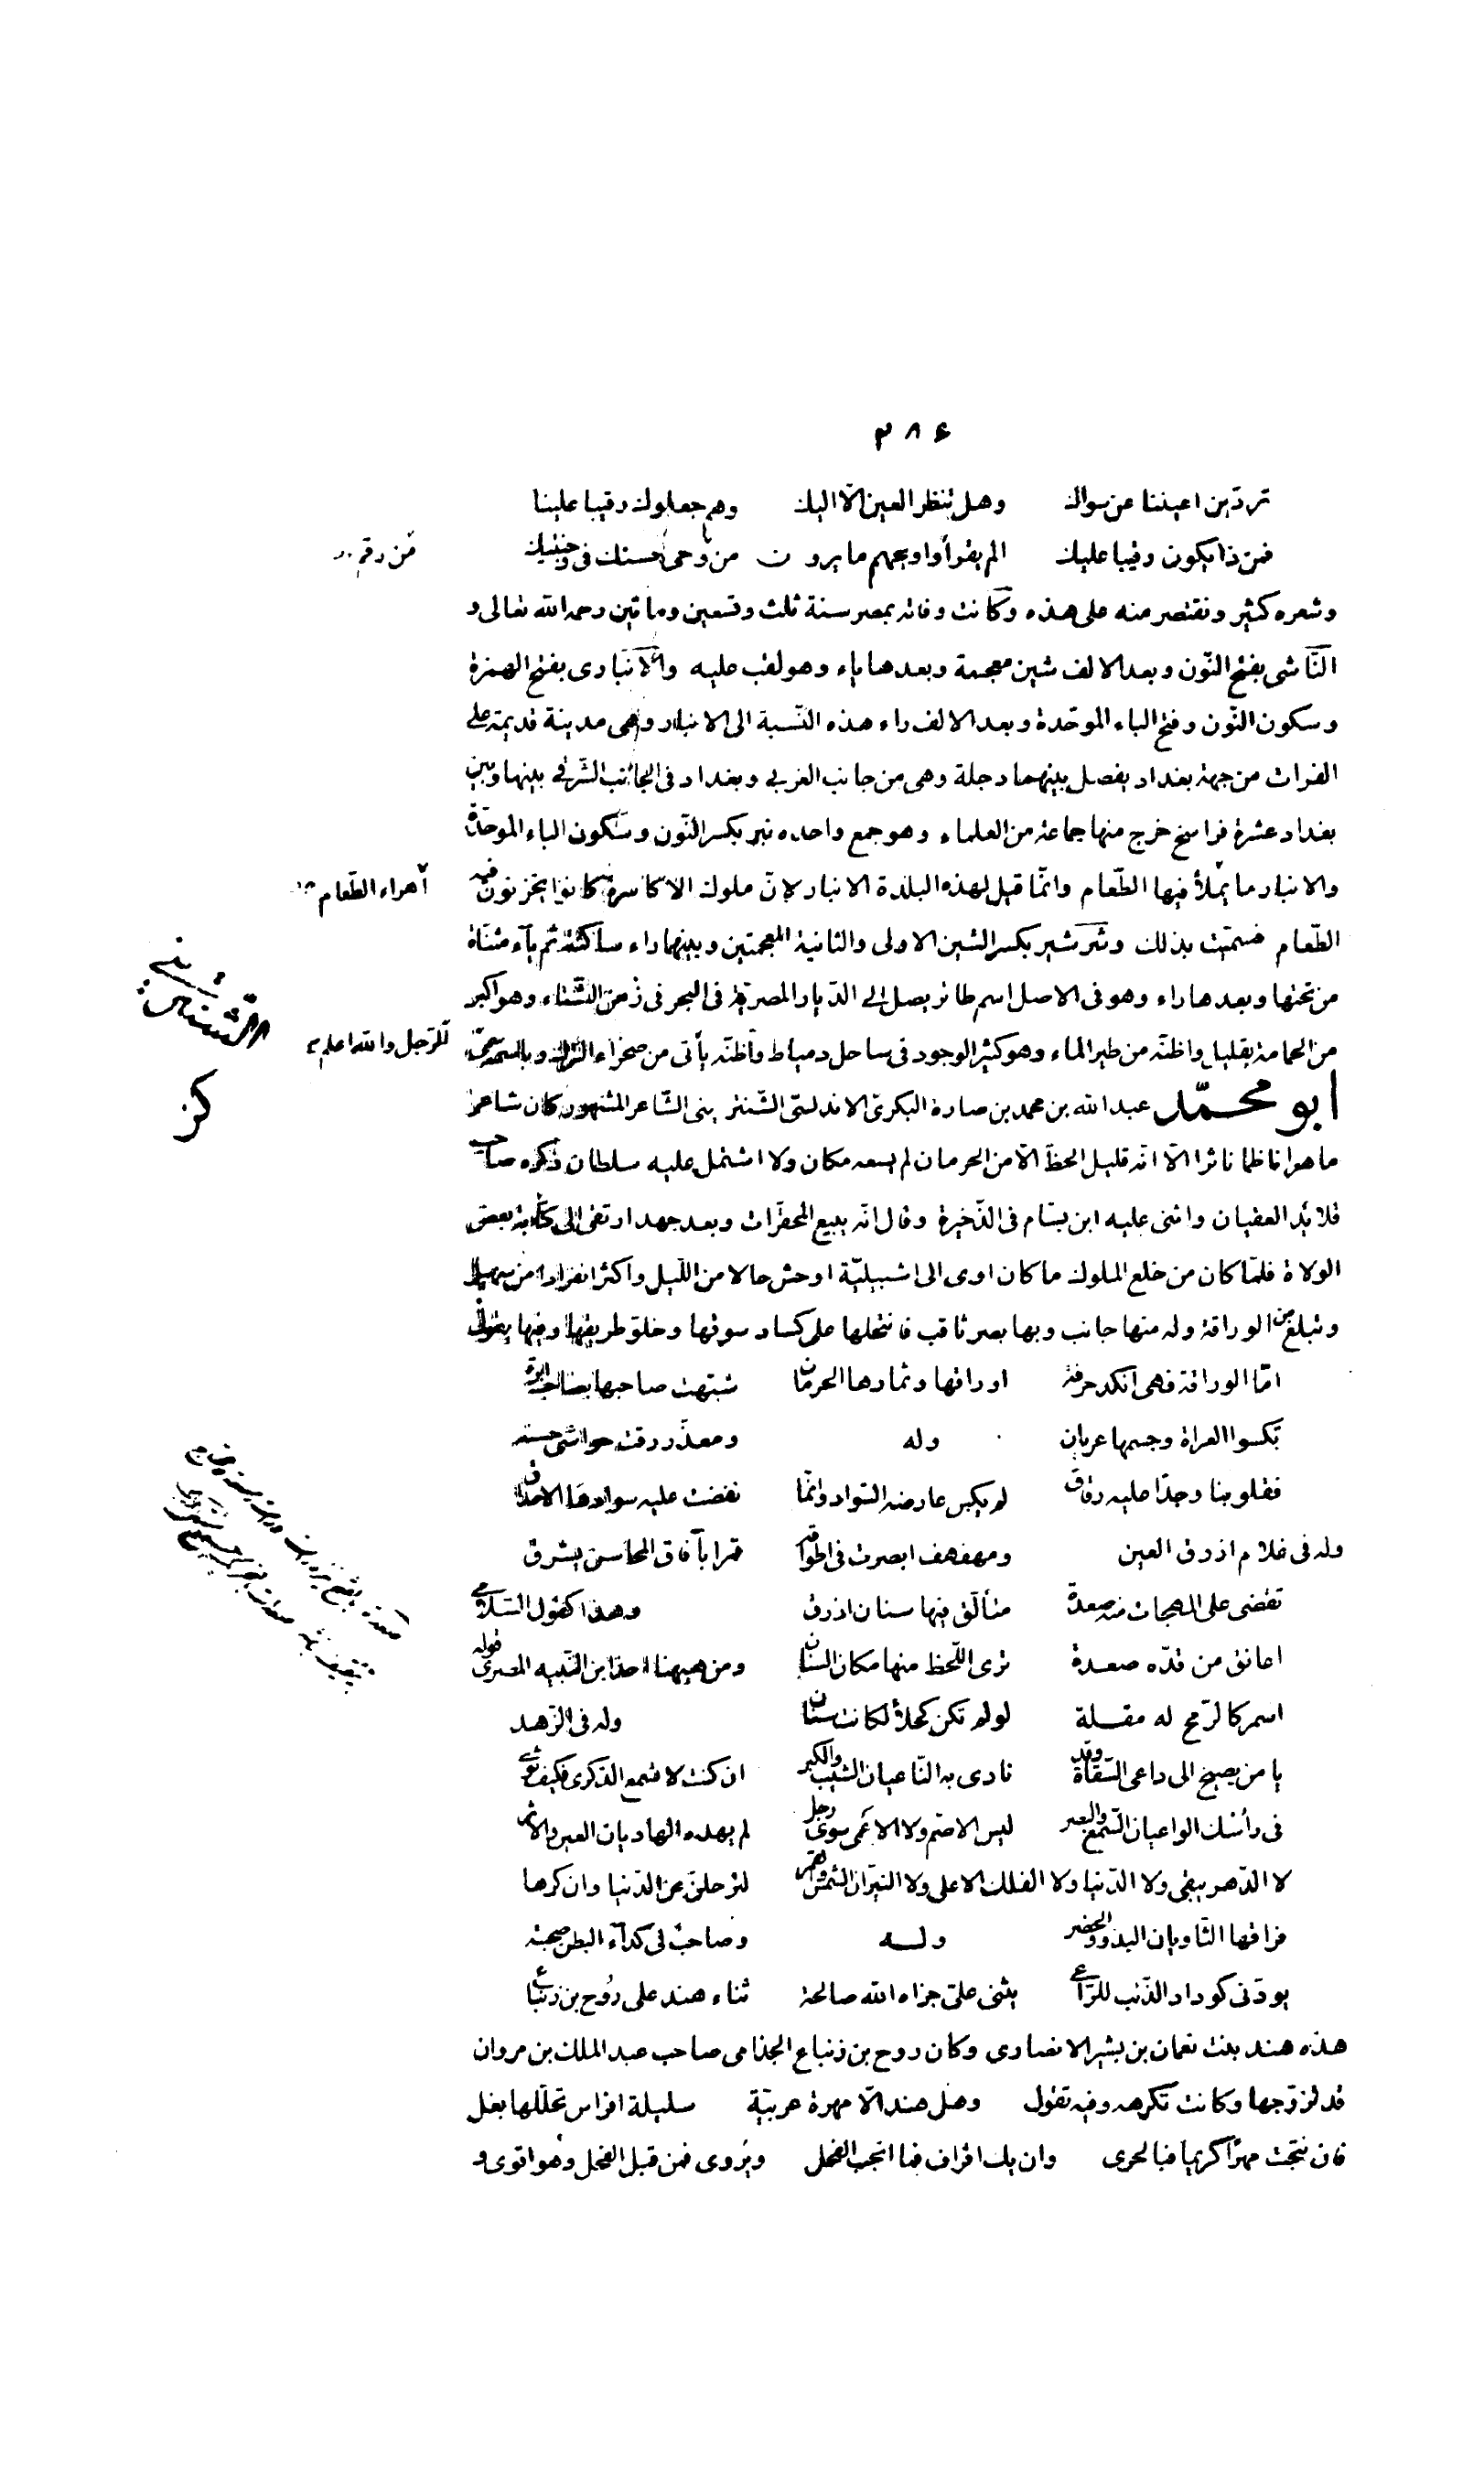 ٢٨٤
تردّين اعيننا عن سواك وهل تنظر العين الّا اليك وهم جعلوك رقيبا علينا
فمن ذا يكون رقيبا عليك الم يقرأوا ويحهم ما يرون من وحى حسنك فى وجنتيك
من رقم
وشعره كثير ونقتصر منه على هذه وكانت وفاته بمصر سنة ثلث وتسعين وماتين رحمه الله تعالى و
النّاشى بفتح النّون وبعد الالف شين معجمة وبعدها ياء وهو لقب عليه والانبارى بفتح الهمزة
وسكون النّون وفتح الباء الموحّدة وبعد الالف راء هذه النّسبة الى الانبار وهى مدينة قديمة على
الفرات من جهة بغداد يفصل بينهما دجلة وهى من جانب الغربى وبغداد فى الجانب الشّرقى بينها وبين
بغداد عشرة فراسخ خرج منها جماعة من العلماء وهو جمع واحده نبر بكسر النّون وسكون الباء الموحّدة
والانبار ما يملأ فيها الطّعام وانّما قيل لهذه البلدة الانبار لانّ ملوك الاكاسرة كانوا يخزنون فيه
أهراء الطّعام
الطّعام فسمّيت بذلك وشرشير بكسر الشين الاولى والثانية المعجمتين وبينهما راء ساكنة ثم ياء مثنّاة
من تحتها وبعدها راء وهو فى الاصل اسم طائر يصل الى الدّيار المصريّة فى البحر فى زمن الشّتاء وهو اكبر
من الحمامة بقليل واظنّه من طير الماء وهو كثير الوجود فى ساحل دمياط واظنّه يأتى من صحراء الترك وباسمه سمّى
الرّجل والله اعلم
الشنترينى
ابو محمّد عبد الله بن محمد بن صارة البكرىّ الاندلسىّ الشّنترينى الشّاعر المشهور كان شاعرا
ماهرا ناظما ناثرا الّا انّه قليل الحظّ الّا من الحرمان لم يسعه مكان ولا اشتمل عليه سلطان ذكره صاحب
قلائد العقيان واثنى عليه ابن بسّام فى الذّخيرة وقال انّه يبيع المحقّرات وبعد جهد ارتقى الى كتابة بعض
الولاة فلمّا كان من خلع الملوك ما كان اوى الى اشبيليّة اوحش حالا من اللّيل واكثر انفرادا من سهيل
وتبلغ من الوراقة وله منها جانب وبها بصر ثاقب فانتحلها على كساد سوقها وخلوّ طريقها وفيها يقول
امّا الوراقة فهى انكد حرفة اوراقها وثمارها الحرمان شبّهت صاحبها بصاحب ابرة
تكسوا العراة وجسمها عريان وله ومعذّر رقت حواشى حسنه
فقلوبنا وجدّا عليه رقاق لم يكس عارضه السّواد وانّما نفضت عليه سوادها الاحداق
وله فى غلام ازرق العين ومهفهف ابصرت فى اطواقه قمرا بآفاق المحاسن يشرق
تقضى على المهجات منه صعدة متألّق فيها سنان ازرق وهذا كقول السّلامى
اعانق من قدّه صعدة ترى اللّحظ منها مكان السّنان ومن ههنا اخذ ابن النّبيه المصرى قوله
اسمر كالرّمح له مقلة لو لم تكن كحلاً لكانت سنان وله فى الزّهد
يا من يصيخ الى داعى السّقاة وقد نادى به النّاعيان الشيب والكبر ان كنت لا تسمع الذكرى فكيف
فى رأسك الواعيان السّمع والبصر ليس الاصمّ ولا الاعمى سوى رجل لم يهده الهاديان العين والاثر
لا الدّهر يبقى ولا الدّنيا ولا الفلك الاعلى ولا النيّران الشمس والقمر لترحلنّ عن الدّنيا وان كرها
فراقها الثّاويان البدو والحضر وله وصاحب لى كداء البطن صحبته
يودّنى كوداد الذّئب للرّاعى يثنى علىّ جزاه الله صالحة ثناء هند على روح بن زنباع
هذه هند بنت نعمان بن بشير الانصارى وكان روح بن زنباع الجذامى صاحب عبد الملك بن مروان
قد تزوّجها وكانت تكرهه وفيه تقول وهل هند الّا مهرة عربيّة سليلة افراس تحلّلها بغل
فان نتجت مهرًا كريما فبالحرى وان يك اقراف فما انجب الفحل ويروى فمن قبل الفحل وهو اقوى و